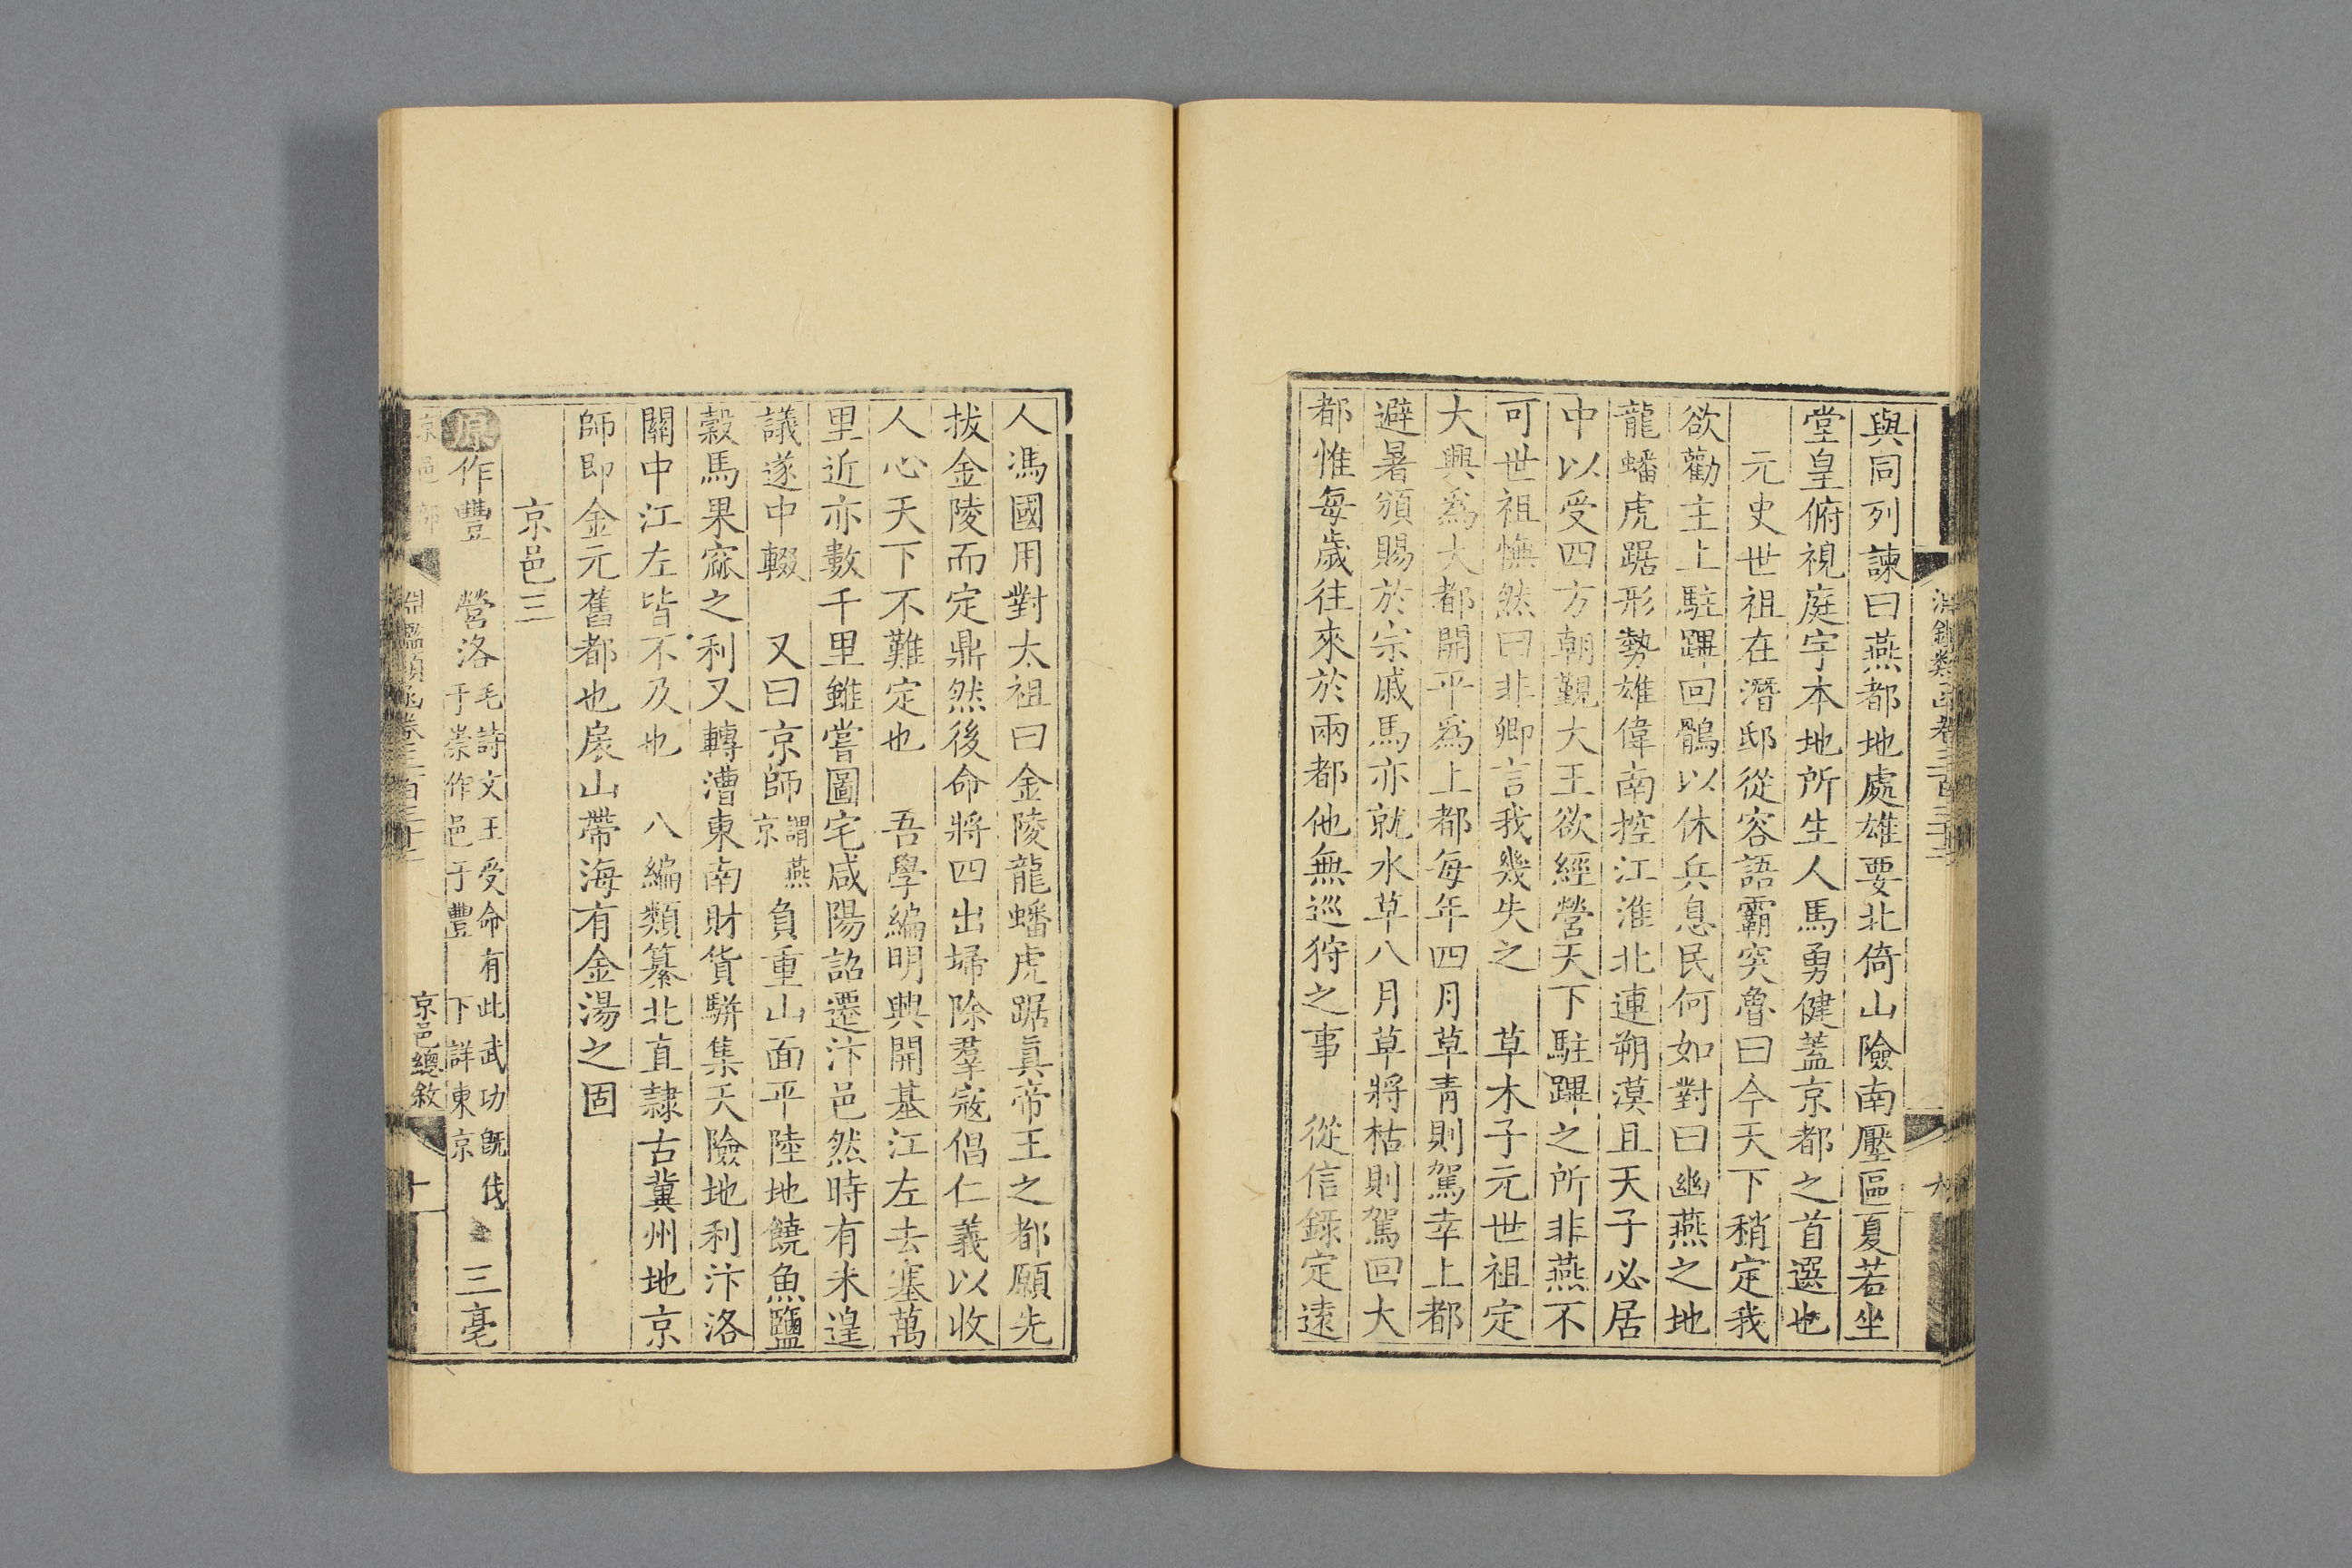 與同列諫曰燕都地處雄要北倚山險南壓區夏若坐
堂皇俯視庭宇本地所生人馬勇健蓋京都之首選也
元史世祖在潛邸從容語霸突魯曰今天下稍定我
欲勸主上駐蹕回鶻以休兵息民何如對曰幽燕之地
龍蟠虎踞形勢雄偉南控江淮北連朔漠且天子必居
中以受四方朝覲大王欲經營天下駐蹕之所非燕不
可世祖憮然曰非卿言我幾失之 草木子元世祖定
大興爲大都開平爲上都每年四月草青則駕幸上都
避暑頒賜於宗戚馬亦就水草八月草將枯則駕回大
都惟每歲往來於兩都他無巡狩之事 從信錄定遠
人馮國用對太祖曰金陵龍蟠虎踞真帝王之都願先
拔金陵而定鼎然後命將四出埽除羣寇倡仁義以收
人心天下不難定也 吾學編明興開基江左去塞萬
里近亦數千里雖嘗圖宅咸陽詔遷汴邑然時有未遑
議遂中輟 又曰京師謂燕京負重山面平陸地饒魚鹽
穀馬果窳之利又轉漕東南財貨駢集天險地利汴洛
關中江左皆不及也 八編類纂北直隸古冀州地京
師即金元舊都也扆山帶海有金湯之固
京邑三
原作豐 營洛毛詩文王受命有此武功既伐于崇作邑于豐 下詳東京 三亳
京邑部 淵鑑類函卷三百三十三 京邑總敘 十